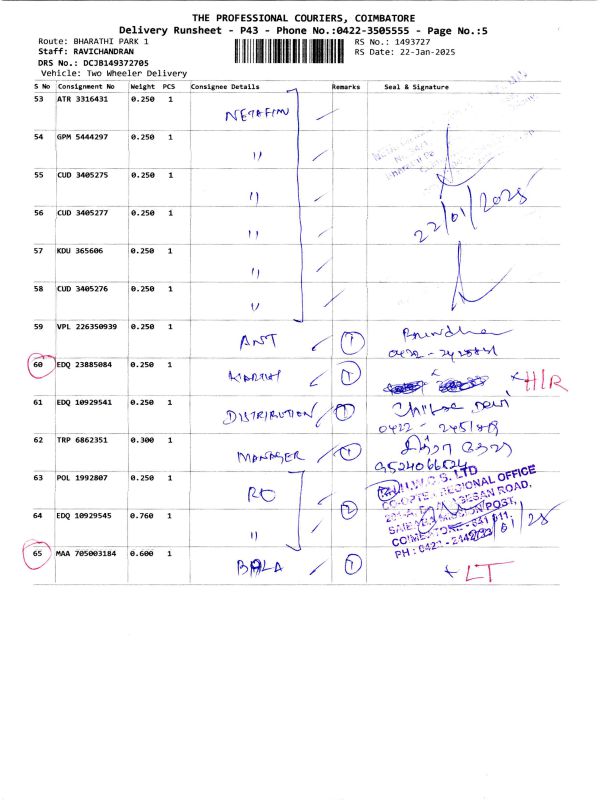 THE PROFESSIONAL COURIERS, COIMBATORE
Delivery Runsheet - P43 - Phone No.:0422-3505555 - Page No.:5
Route: BHARATHI PARK 1
RS No.: 1493727
Staff: RAVICHANDRAN
RS Date: 22-Jan-2025
DRS No.: DCJB149372705
Vehicle: Two Wheeler Delivery
S No Consignment No Weight PCS Consignee Details Remarks Seal & Signature
53 ATR 3316431 0.250 1 NETAFIM
54 GPM 5444297 0.250 1 "
55 CUD 3405275 0.250 1 "
56 CUD 3405277 0.250 1 " 22/01/2025
57 KDU 365606 0.250 1 "
58 CUD 3405276 0.250 1 "
59 VPL 226350939 0.250 1 ANT 1
60 EDQ 23885084 0.250 1 1 H/R
61 EDQ 10929541 0.250 1 DISTRIBUTION 1
62 TRP 6862351 0.300 1 MANAGER 1
9524066524
63 POL 1992807 0.250 1 RO
64 EDQ 10929545 0.760 1 " 2
CO-OPTEX REGIONAL OFFICE
COIMBATORE - 641 011.
65 MAA 705003184 0.600 1 BALA 1 LT